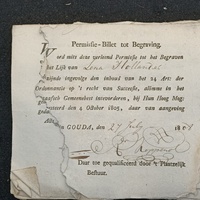 Permissie-Billet tot Begraving.
Word mits deze verleend Permissie tot het Begraven
het Lijk van Lena Hollander
mijnde ingevolge den inhoud van het 14 Art: der
Ordonnantie op 't recht van Successie, alomme in het
Bataafsch Gemeenebest intevorderen, bij Hun Hoog Mog:
gearresteerd den 4 October 1805, daar van aangeving
GOUDA, den 27 July
Daar toe gequalificeerd door 't Plaatselijk
Bestuur.